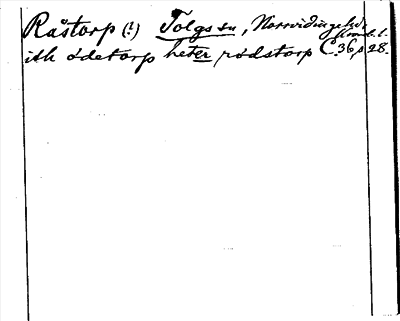 Råstorp (!) Tolgs sn, Norrvidinge hd.
Kronob. l.
ith ödetorp heter rödstorp C. 36, p 28.